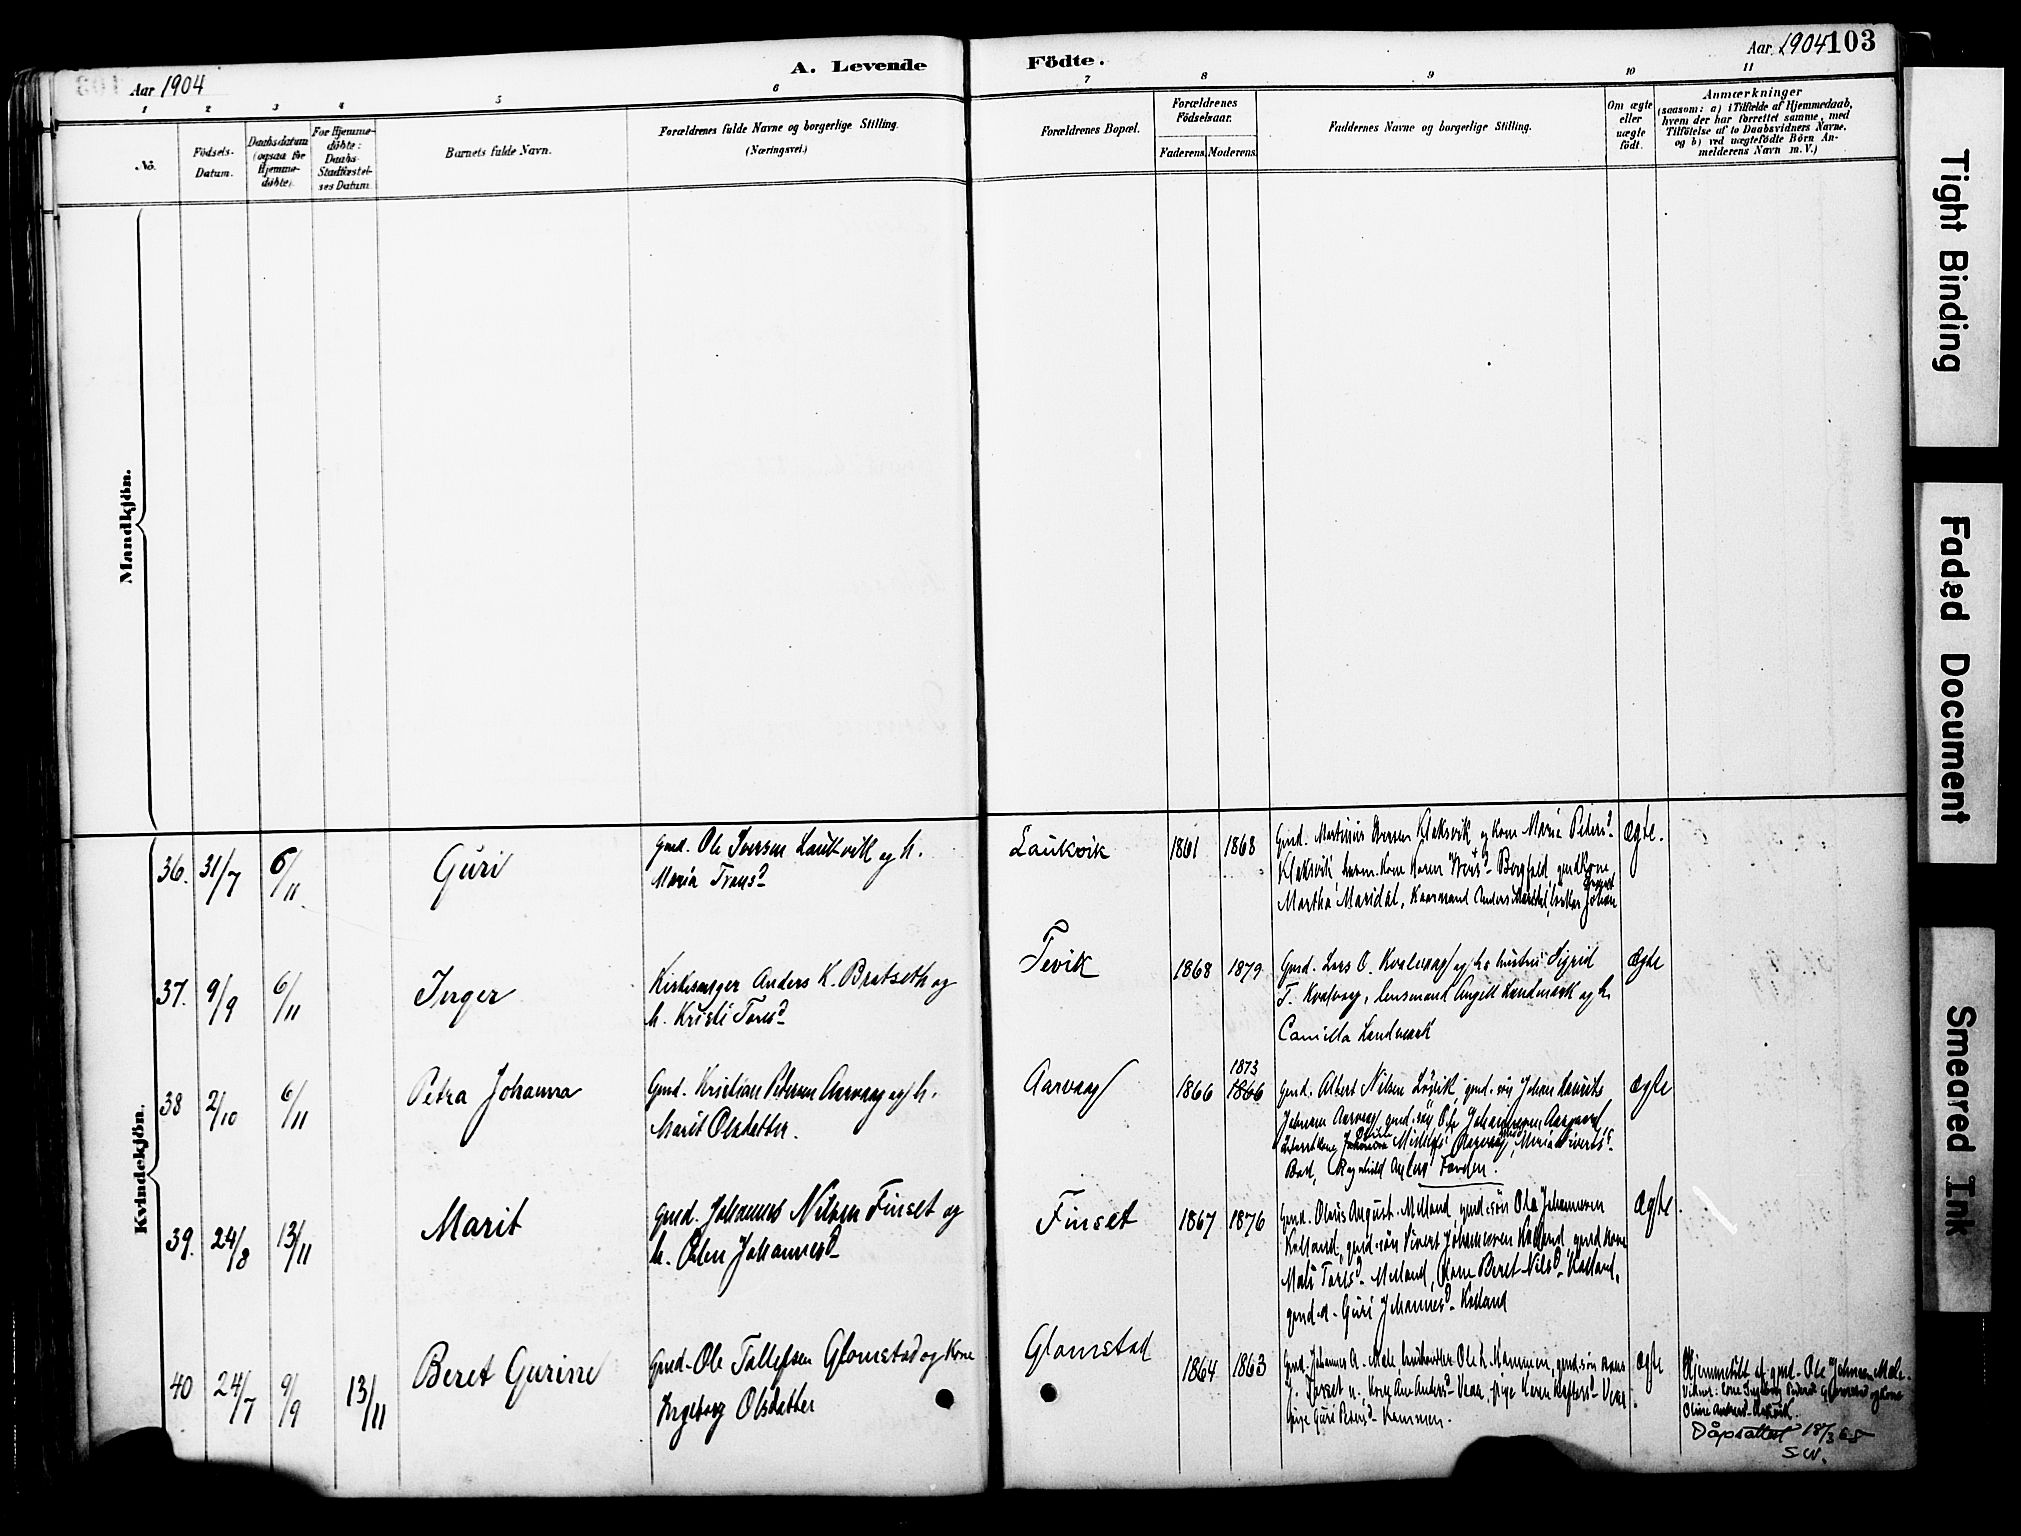 Aar 1904
A. Levende
Födte.
Aar 1904 103
1 2 3 4 5 6 7 8 9 10 11
No.
Födsels-
Datum.
Daabsdatum
(ogsaa for
Hjemme-
døbte).
For Hjemme-
døbte:
Daabs-
Stadfæstel-
ses Datum.
Barnets fulde Navn.
Forældrenes fulde Navne og borgerlige Stilling.
(Næringsvei.)
Forældrenes Bopæl.
Forældrenes
Födselsaar.
Faderens. Moderens.
Faddernes Navne og borgerlige Stilling.
Om ægte
eller
uægte
født.
Anmærkninger
(saasom: a) i Tilfælde af Hjemmedaab,
hvem der har forrettet samme, med
Tilföielse af to Daabsvidners Navne,
og b) ved uægtefödte Börn An-
melderens Navn m. V.)
Mandkjön.
Kvindekjön.
36. 31/7 6/11 Guri
Gmd. Ole Iversen Laukvik og h.
Maria
Laukvik 1861 1868
Gmd. Martinus Iversen Klaksvik og kone Maria Pedersd.
Klaksvik
Martha Maridal, Anders
ægte.
37. 9/9 6/11 Inger
Kirkesanger Anders K. Bratseth og
h. Kristi Toresd.
Tevik 1868 1879
Gmd. Lars O. Kvalvaag og hs hustru Sigrid
T. Kvalvaag, lensmand Angell Landmark og h.
Camilla Landmark
ægte
38 2/10 6/11 Petra Johanna
Gmd. Kristian Petersen Aarvaag og h.
Marit Olsdatter.
Aarvaag 1866 1873
1866
Gmd. Albert Nilsen Løgvik, gmd.søn Johan Laurits
Johnsen Aarvaag, gmd.søn Ole Johannesen Aarvaag,
Maria Siverts
ægte
39. 24/8 13/11 Marit
Gmd. Johannes Nilsen Finset og
h. Johannesd.
Finset 1867 1876
Gmd. Olaus August Melland, gmd.søn Ola Johannesen
Kolland, gmd.søn Sivert Johannesen Kolland, gmd.kone
Toresd. Melland, Kone Beret Nilsd. Kolland,
gmd.d. Guri Johannesd. Kolland
ægte.
40 24/7 9/9 13/11 Beret Gurine
Gmd. Ole Tollefsen Glomstad og kone
Ingeborg Olsdatter
Glomstad 1864 1863
Gmd. Johannes A. Male, landhandler Ole L. Mammen, gmd.søn
pige Guri Petersd.
ægte
Hjemmedøbt af gmd. Ole Johnsen Male.
Vidner: kone Ingeborg Pedersd. Glomstad og kone
Oline
Dåpsattest 18/3 68
S W.
Tight Binding
Faded Document
Smeared Ink